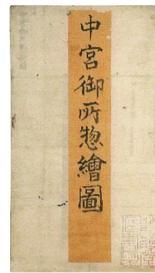 中宮御所惣繪圖